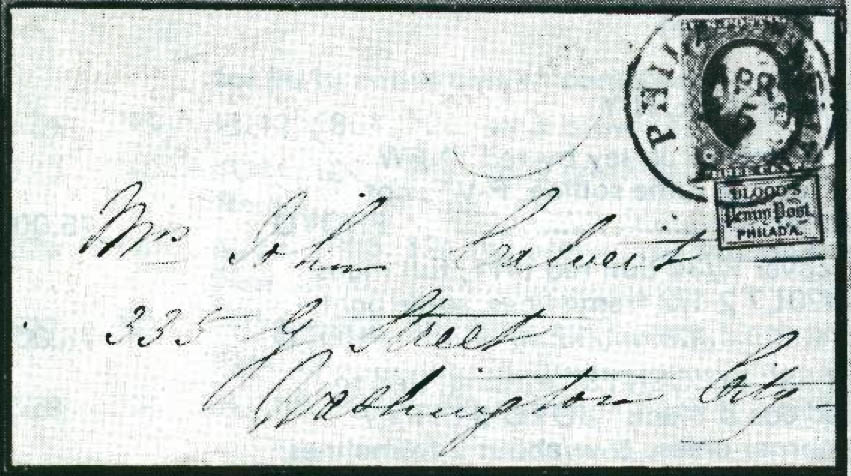 PHIL
APR
5
BLOOD'S
Penny Post
PHILAD'A.
Mrs John Calvert
335 G Street
Washington City